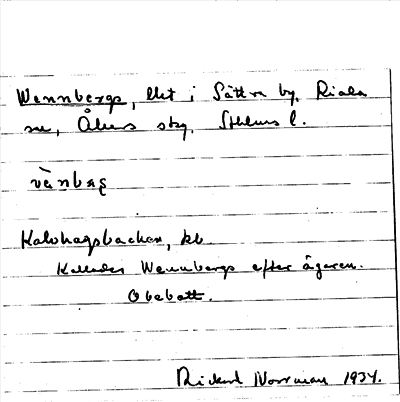 Wennbergs, lht i Sättra by, Riala
sn, Åkers skg, Sthlms l.
vènbærs
Kalvhagsbacken, kb
Kallades Wennbergs efter ägaren.
Obebott.
Rickard Norrman 1934.